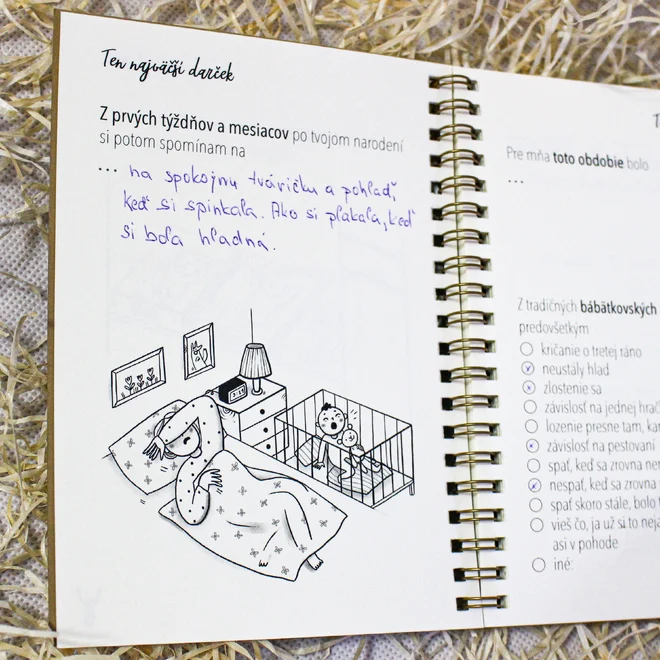 Ten najväčší darček
Z prvých týždňov a mesiacov po tvojom narodení
si potom spomínam na
... na spokojnu tváričku a pohľad,
keď si spinkala. Ako si plakala, keď
si bola hladná.
Pre mňa toto obdobie bolo
...
Z tradičných bábätkovských
predovšetkým
kričanie o tretej ráno
neustály hlad
zlostenie sa
závislosť na jednej
lozenie presne tam,
závislosť na pestovaní
spať, keď sa zrovna
nespať, keď sa zrovna
spať skoro stále, bolo
vieš čo, ja už si to
asi v pohode
iné: